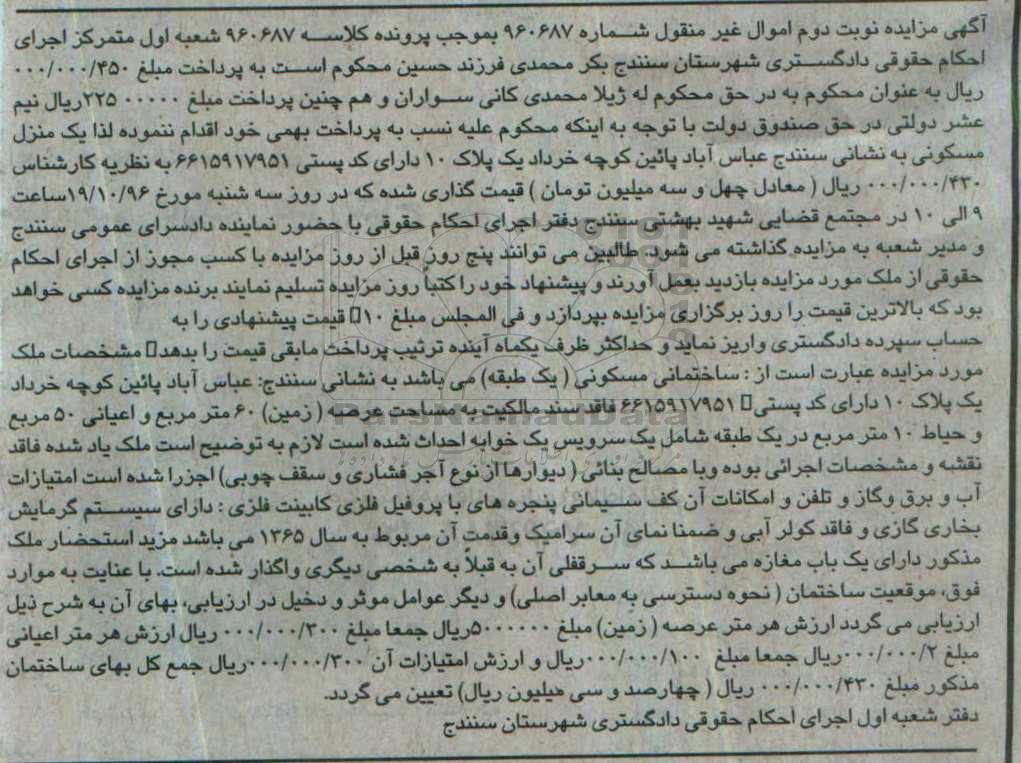 آگهی مزایده نوبت دوم اموال غیر منقول شماره ۹۶۰۶۸۷ بموجب پرونده کلاسه ۹۶۰۶۸۷ شعبه اول متمرکز اجرای
احکام حقوقی دادگستری شهرستان سنندج بکر محمدی فرزند حسین محکوم است به پرداخت مبلغ ۰۰۰/۰۰۰/۴۵۰
ریال به عنوان محکوم به در حق محکوم له ژیلا محمدی کانی سواران و هم چنین پرداخت مبلغ ۲۲۵۰۰۰۰۰ ریال نیم
عشر دولتی در حق صندوق دولت با توجه به اینکه محکوم علیه نسب به پرداخت بهمی خود اقدام ننموده لذا یک منزل
مسکونی به نشانی سنندج عباس آباد پائین کوچه خرداد یک پلاک ۱۰ دارای کد پستی ۶۶۱۵۹۱۷۹۵۱ به نظریه کارشناس
۰۰۰/۰۰۰/۴۳۰ ریال ( معادل چهل و سه میلیون تومان ) قیمت گذاری شده که در روز سه شنبه مورخ ۱۹/۱۰/۹۶ساعت
۹ الی ۱۰ در مجتمع قضایی شهید بهشتی سنندج دفتر اجرای احکام حقوقی با حضور نماینده دادسرای عمومی سنندج
و مدیر شعبه به مزایده گذاشته می شود. طالبین می توانند پنج روز قبل از روز مزایده با کسب مجوز از اجرای احکام
حقوقی از ملک مورد مزایده بازدید بعمل آورند و پیشنهاد خود را کتباً روز مزایده تسلیم نمایند برنده مزایده کسی خواهد
بود که بالاترین قیمت را روز برگزاری مزایده بپردازد و فی المجلس مبلغ ۱۰ قیمت پیشنهادی را به
حساب سپرده دادگستری واریز نماید و حداکثر ظرف یکماه آینده ترتیب پرداخت مابقی قیمت را بدهد مشخصات ملک
مورد مزایده عبارت است از : ساختمانی مسکونی ( یک طبقه) می باشد به نشانی سنندج: عباس آباد پائین کوچه خرداد
یک پلاک ۱۰ دارای کد پستی ۶۶۱۵۹۱۷۹۵۱ فاقد سند مالکیت به مساحت عرصه ( زمین) ۶۰ متر مربع و اعیانی ۵۰ مربع
و حیاط ۱۰ متر مربع در یک طبقه شامل یک سرویس یک خوابه احداث شده است لازم به توضیح است ملک یاد شده فاقد
نقشه و مشخصات اجرائی بوده وبا مصالح بنائی ( دیوارها از نوع آجر فشاری و سقف چوبی) اجزرا شده است امتیازات
آب و برق وگاز و تلفن و امکانات آن کف سیمانی پنجره های با پروفیل فلزی کابینت فلزی : دارای سیستم گرمایش
بخاری گازی و فاقد کولر آبی و ضمنا نمای آن سرامیک وقدمت آن مربوط به سال ۱۳۶۵ می باشد مزید استحضار ملک
مذکور دارای یک باب مغازه می باشد که سرقفلی آن به قبلاً به شخصی دیگری واگذار شده است. با عنایت به موارد
فوق، موقعیت ساختمان ( نحوه دسترسی به معابر اصلی) و دیگر عوامل موثر و دخیل در ارزیابی، بهای آن به شرح ذیل
ارزیابی می گردد ارزش هر متر عرصه ( زمین) مبلغ ۵۰۰۰۰۰۰ریال جمعا مبلغ ۰۰۰/۰۰۰/۳۰۰ ریال ارزش هر متر اعیانی
مبلغ ۰۰۰/۰۰۰/۲ریال جمعا مبلغ ۰۰۰/۰۰۰/۱۰۰ریال و ارزش امتیازات آن ۰۰۰/۰۰۰/۳۰۰ریال جمع کل بهای ساختمان
مذکور مبلغ ۰۰۰/۰۰۰/۴۳۰ ریال ( چهارصد و سی میلیون ریال) تعیین می گردد.
دفتر شعبه اول اجرای احکام حقوقی دادگستری شهرستان سنندج
ParsNamadData